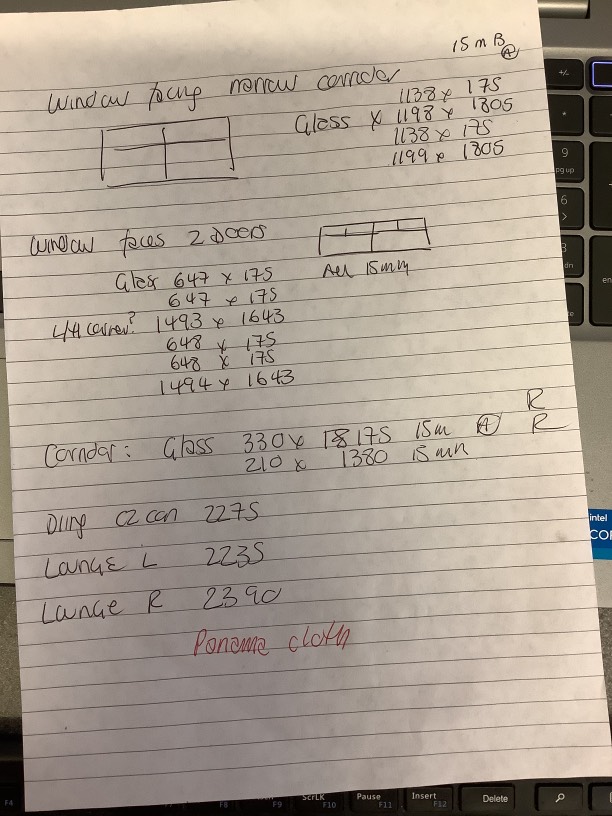 15m B
A
Window facing narrow corridor
1138 x 175
Glass x 1198 x 1305
1138 x 175
1199 x 1305
Window faces 2 Doors
All 15mm
Glass 647 x 175
647 x 175
L/H corner? 1493 x 1643
648 x 175
648 x 175
1494 x 1643
R
Corridor: Glass 330 x 175 15m A R
210 x 1380 15mm
2275
Lounge L 2235
Lounge R 2390
Panama cloth
+/-
*
9
pg up
6
>
3
dn
en
intel
CO
F4
F8
F9
ScrLK
F10
Pause
F11
Insert
F12
Delete